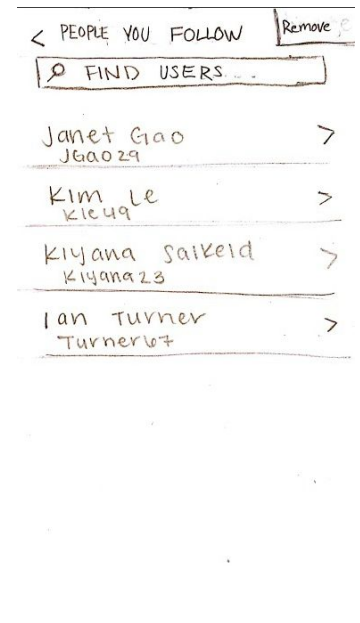 < PEOPLE YOU FOLLOW Remove
FIND USERS...
Janet Gao >
JGao29
Kim Le >
Kle49
Kiyana Saikeid >
Kiyana23
Ian Turner >
Turner67